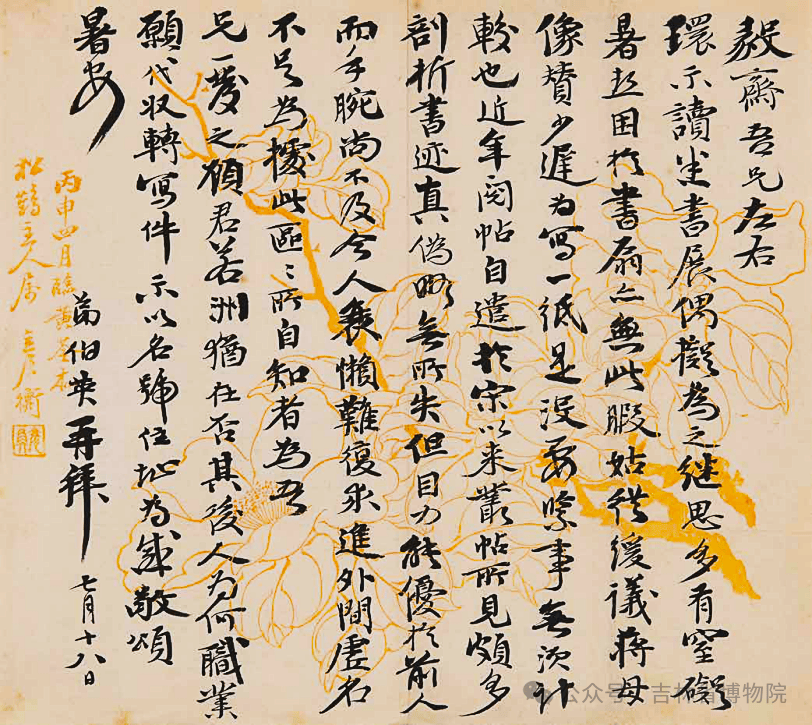 毅齋吾兄左右
環示讀悉書展偶擬為之繼思多有窒礙
暑熱困於書扇亦無此暇姑從緩議蔣母
像贊少遲為寫一紙是沒要緊事無須計
較也近年閱帖自遣於宋以來叢帖所見頗多
剖析書迹真偽略無所失但目力能優於前人
而手腕尚不及今人衰懶難復求進外間虛名
不足為據此區〻所自知者為吾
兄一發之顧君若洲猶在否其後人為何職業
願代收轉寫件示以名號住址為感敬頌
暑安
弟伯英再拜 七月十八日
丙申四月臨
松鶴主人屬
公众号·吉林省博物院